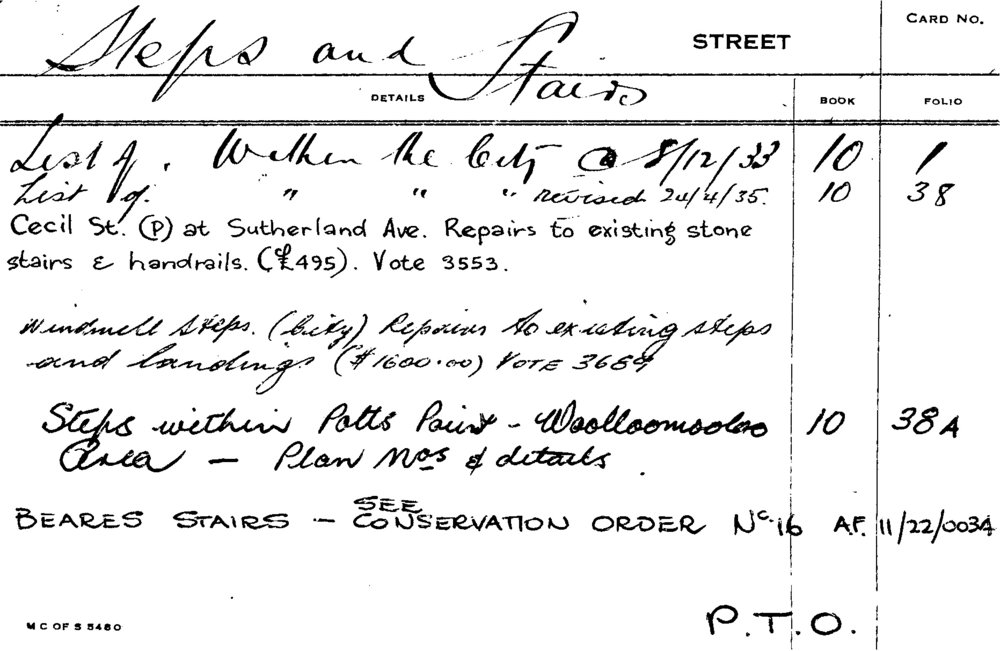 CARD NO.
Steps and Stairs STREET
DETAILS BOOK FOLIO
List of. Within the City @ 8/12/33 10 1
List of. " " " revised 24/4/35. 10 38
Cecil St. (P) at Sutherland Ave. Repairs to existing stone
stairs & handrails. (£495). Vote 3553.
Windmill Steps. (City) Repairs to existing steps
and landings ($1600.00) VOTE 3689
Steps within Potts Point - Woolloomooloo 10 38A
Area — Plan Nos & details.
SEE
BEARES STAIRS — CONSERVATION ORDER No. 16 A.F. 11/22/0034
M C OF S 5480
P.T.O.